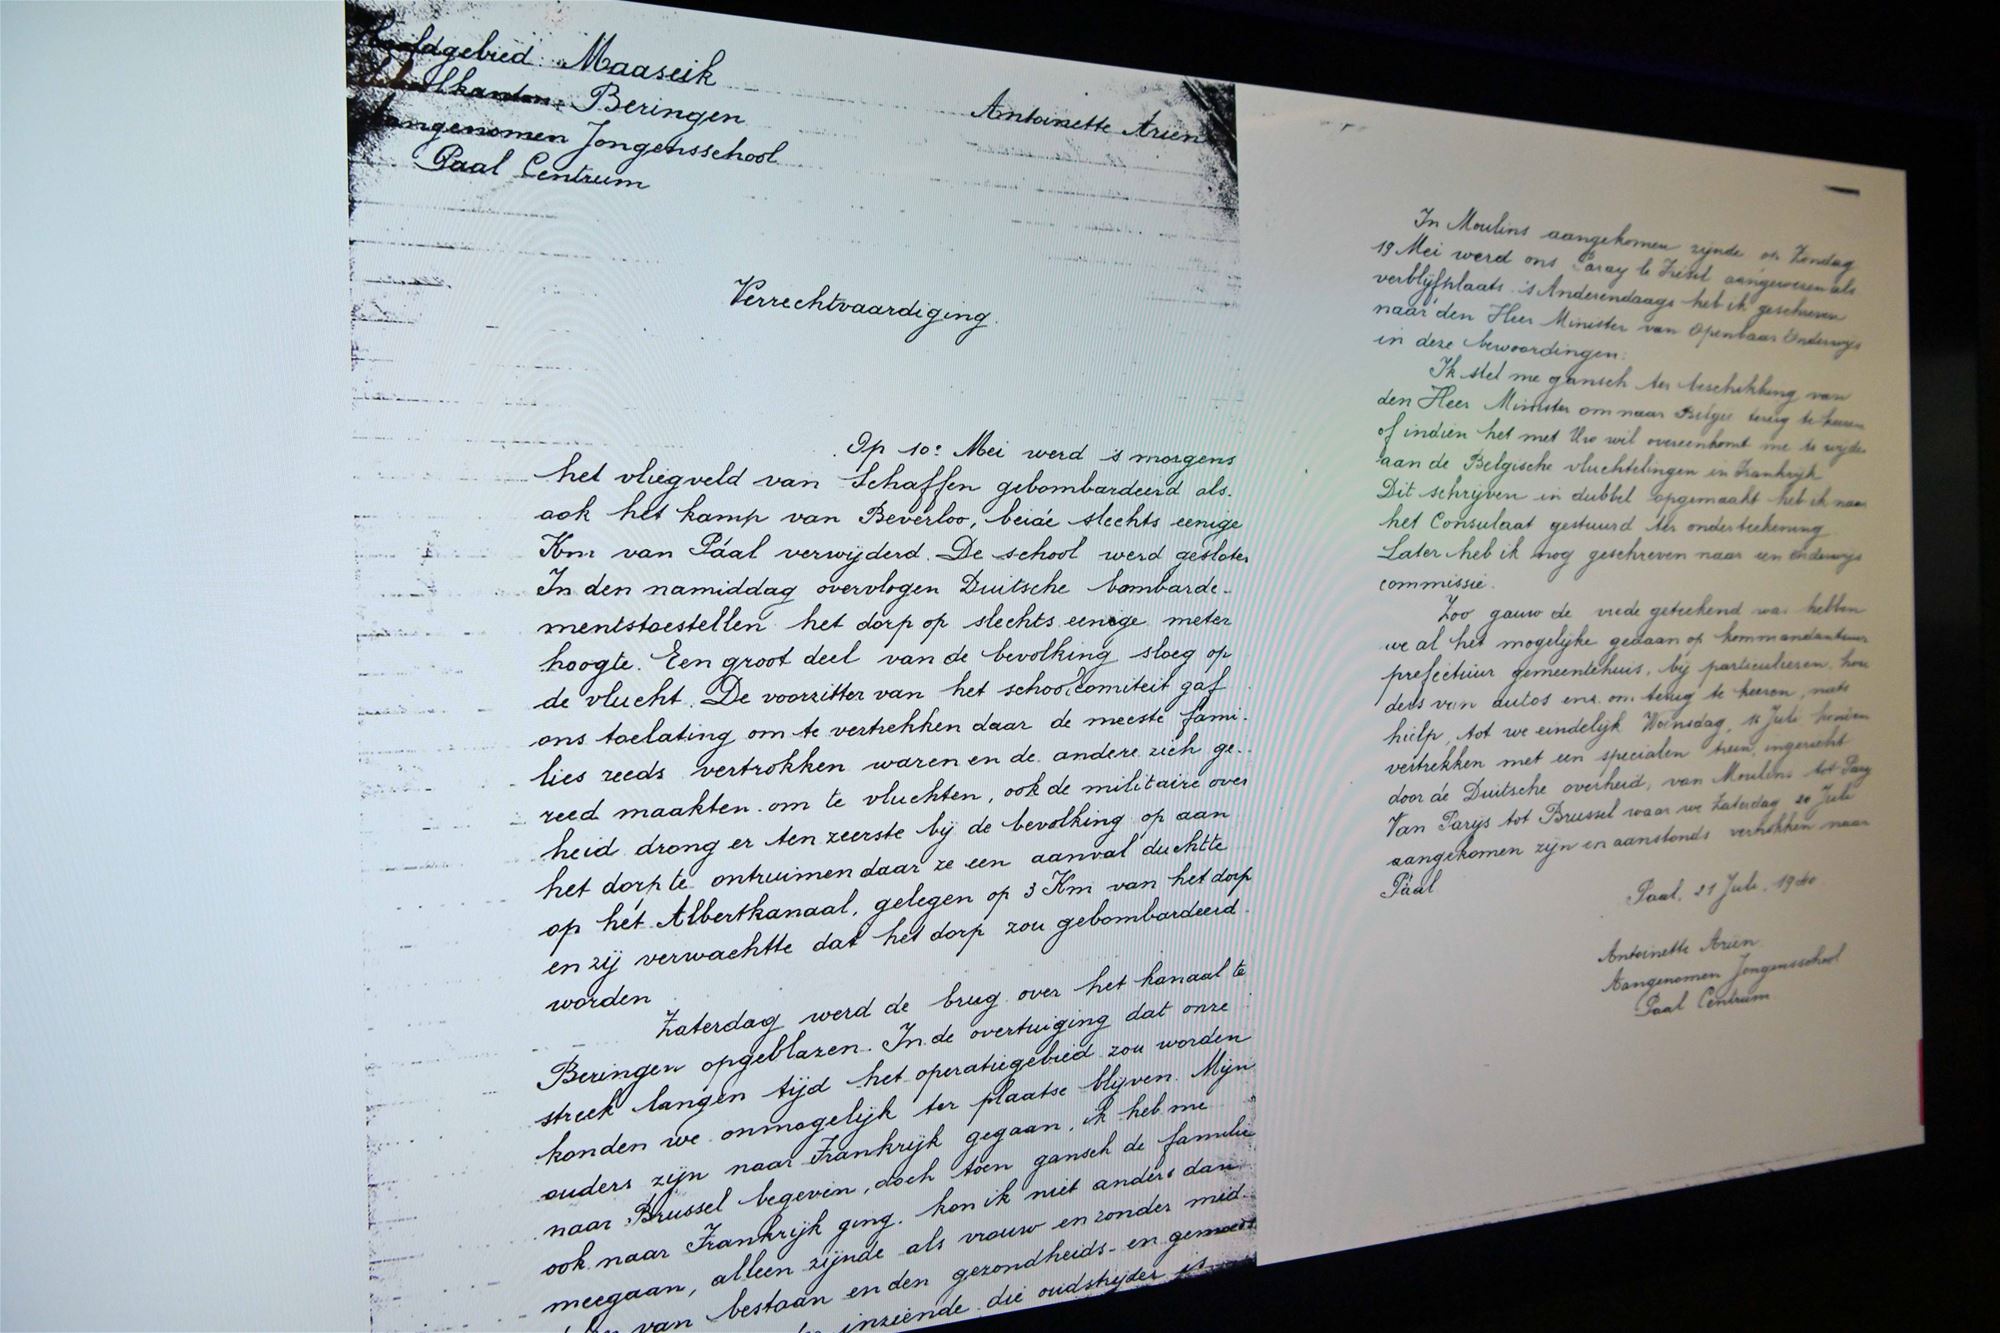 Hoofdgebied: Maaseik
Beringen
Aangenomen Jongensschool
Paal Centrum
Antoinette Ariën
Verrechtvaardiging.
Op 10e Mei werd 's morgens
het vliegveld van Schaffen gebombardeerd als-
ook het kamp van Beverloo, beide slechts eenige
Km van Paal verwijderd. De school werd gesloten
In den namiddag overvlogen Duitsche bombarde-
mentstoestellen het dorp op slechts eenige meter
hoogte. Een groot deel van de bevolking sloeg op
de vlucht. De voorzitter van het schoolcomiteit gaf
ons toelating om te vertrekken daar de meeste fami-
lies reeds vertrokken waren en de andere zich ge-
reed maakten om te vluchten, ook de militaire over
heid drong er ten zeerste bij de bevolking op aan
het dorp te ontruimen daar ze een aanval duchtte
op het Albertkanaal, gelegen op 3 Km van het dorp
en zij verwachtte dat het dorp zou gebombardeerd
worden
Zaterdag werd de brug over het kanaal te
Beringen opgeblazen. In de overtuiging dat onze
streek langen tijd het operatiegebied zou worden
konden we onmogelijk ter plaatse blijven. Mijn
ouders zijn naar Frankrijk gegaan, ik heb me
naar Brussel begeven, doch toen gansch de familie
ook naar Frankrijk ging, kon ik niet anders dan
meegaan, alleen zijnde als vrouw en zonder mid-
van bestaan en den gezondheids- en gemoeds
inziende die oudstrijder is
In Moulins aangekomen zijnde op Zondag
19 Mei werd ons Paray le Frésil aangewezen als
verblijfplaats 's Anderendaags heb ik geschreven
naar den Heer Minister van Openbaar Onderwijs
in deze bewoordingen:
Ik stel me gansch ter beschikking van
den Heer Minister om naar België terug te keeren
of indien het met Uw wil overeenkomt me te wijden
aan de Belgische vluchtelingen in Frankrijk
Dit schrijven in dubbel opgemaakt heb ik naar
het Consulaat gestuurd ter onderteekening
Later heb ik nog geschreven naar een onderwijs
commissie.
Zoo gauw de vrede geteekend was hebben
we al het mogelijke gedaan op kommandantuur
prefectuur gemeentehuis, bij particulieren, hou
ders van autos enz. om terug te keeren, niets
hielp, tot we eindelijk Woensdag, Juli konden
vertrekken met een specialen trein, ingericht
door de Duitsche overheid, van Moulins tot Parijs
Van Parijs tot Brussel waar we Zaterdag 20 Juli
aangekomen zijn en aanstonds vertrokken naar
Paal
Paal, 21 Juli, 1940
Antoinette Ariën
Aangenomen Jongensschool
Paal Centrum